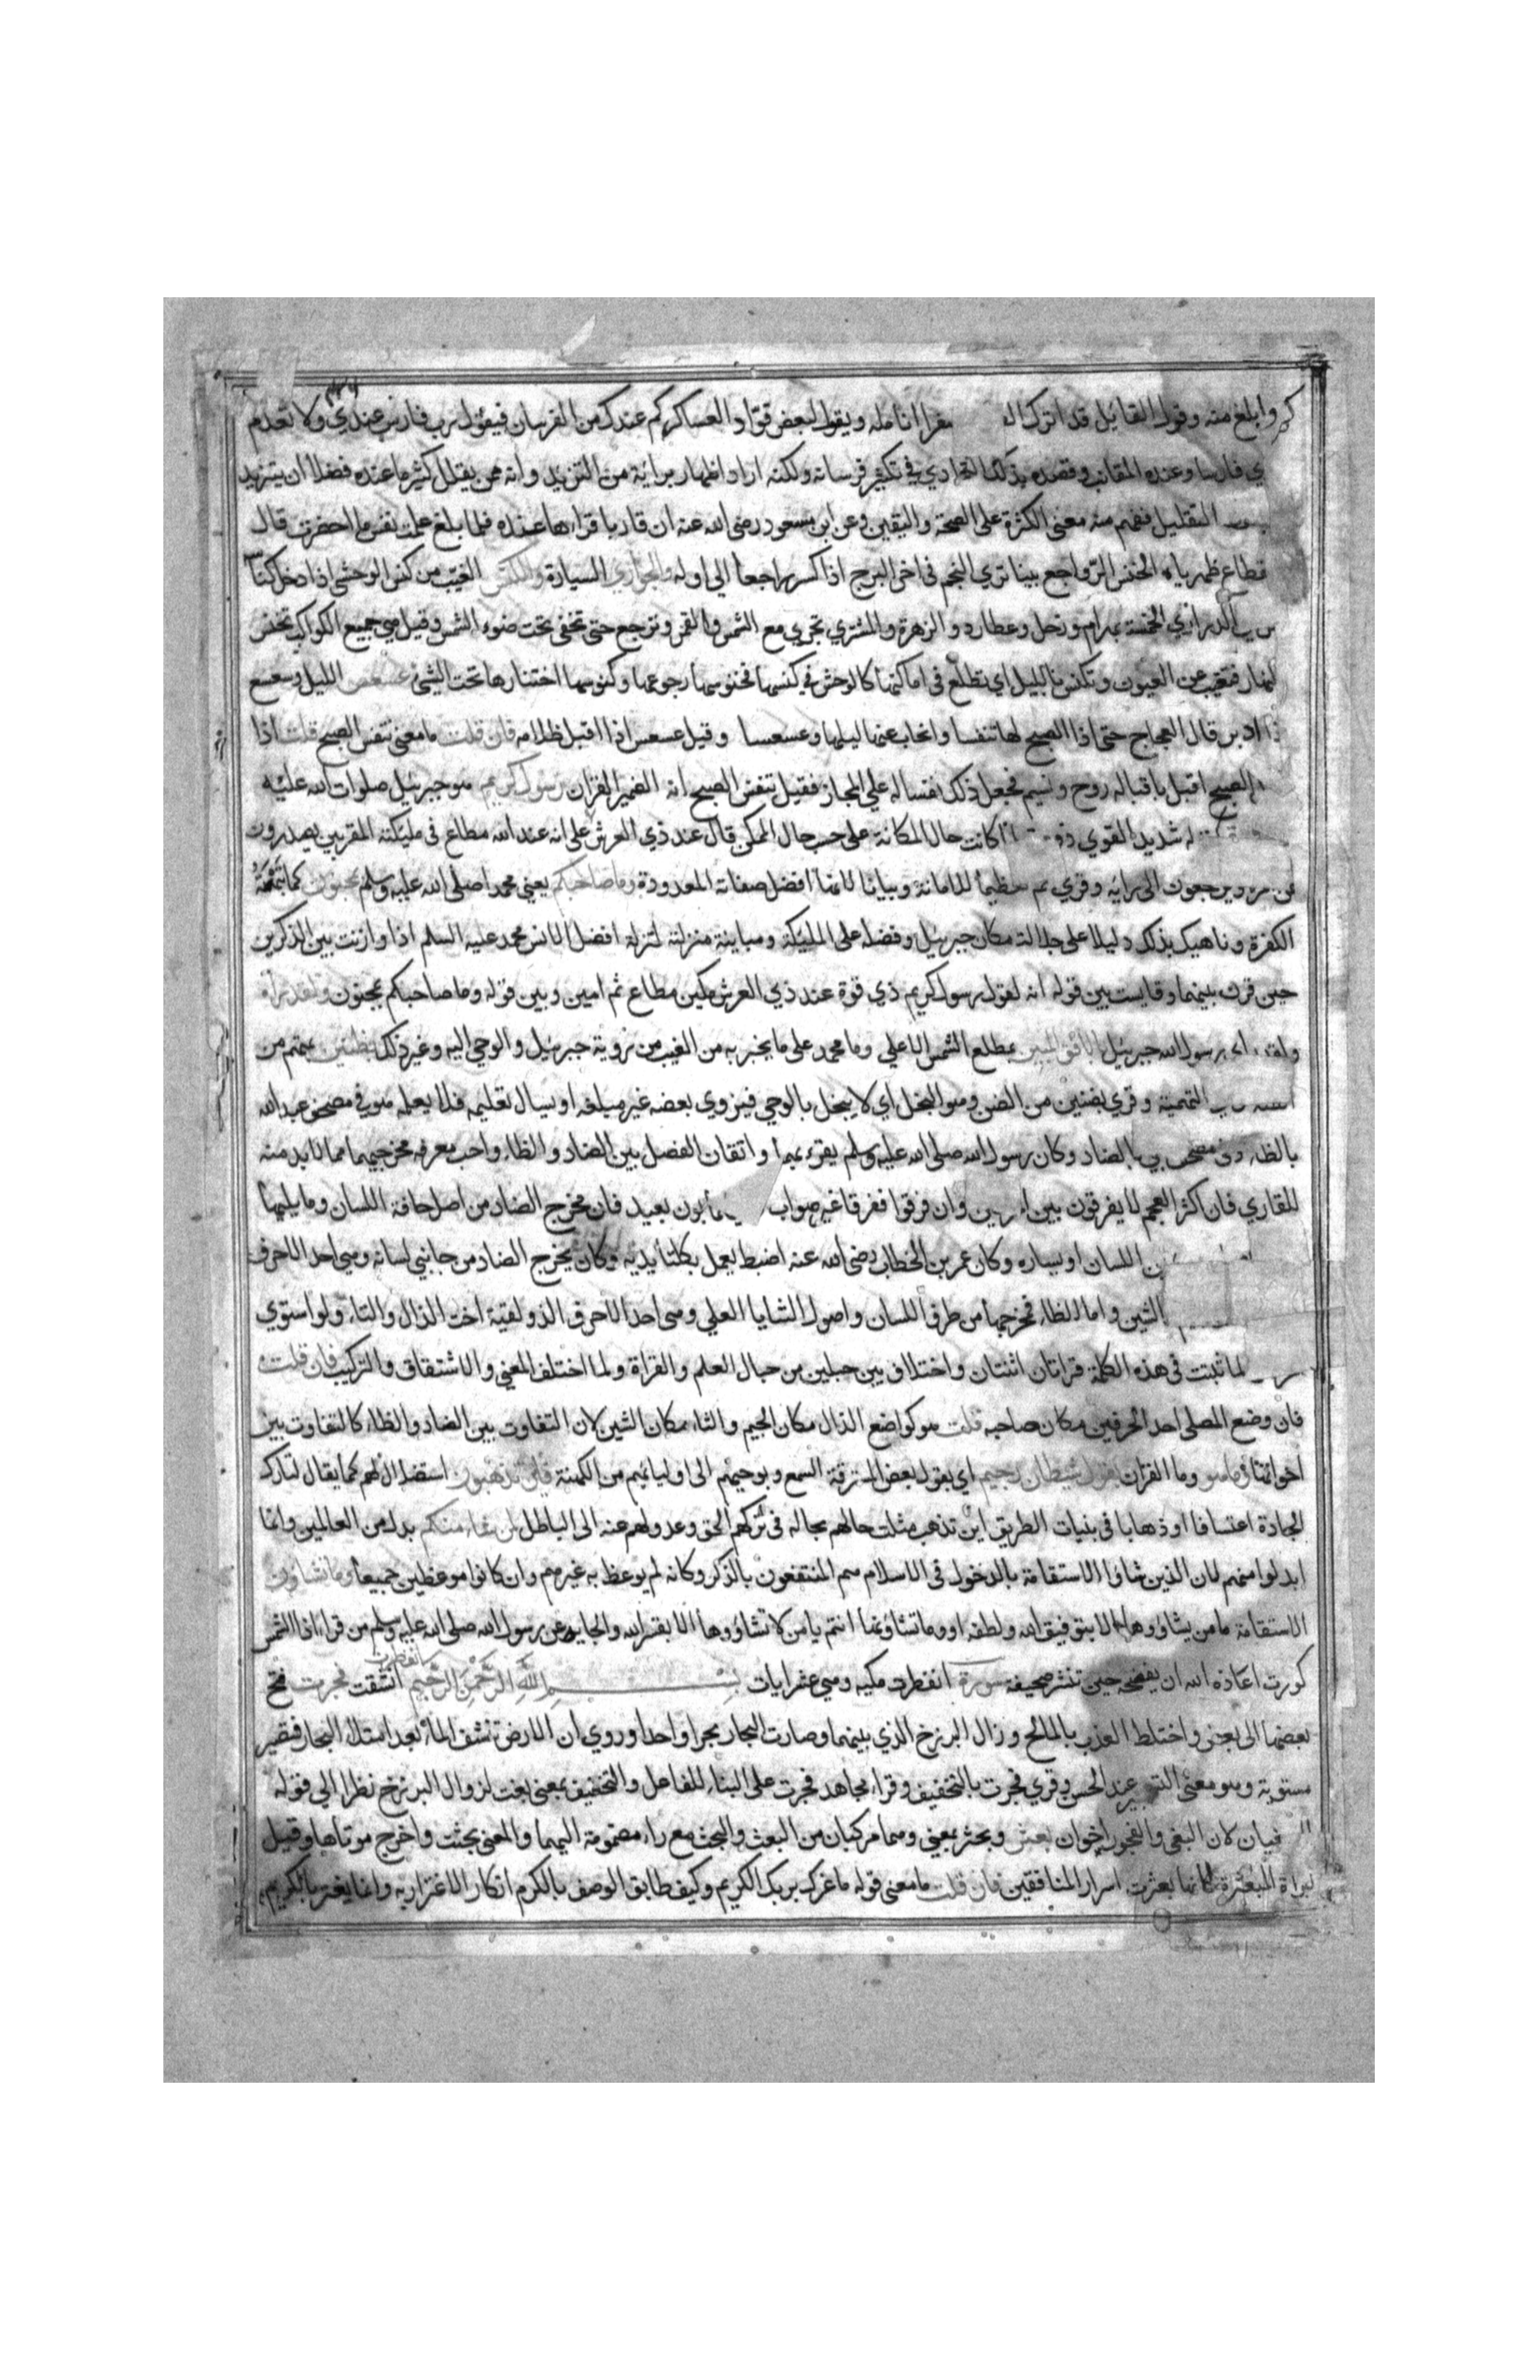 كم وابلغ منه وقول القايل قد اترك ال مفرا انامله ويقول لبعض قواد العساكر كم عندك من الفرسان فيقول رب فارس عندي ولا تعدم
ي فارسا وعنده المقانب وقصده بذلك التمادي في تكثير فرسانه ولكنه اراد اظهار برايته من التزيد وانه ممن يقلل كثير ما عنده فضلا ان يتزيد
التقليل ففهم منه معنى الكثرة على الصحة واليقين وعن ابن مسعود رضى الله عنه ان قاريا قراها عنده فلما بلغ علمت نفس ما احضرت قال
قطاع ظهرياه الخنس الرواجع بينا ترى النجم في اخر البرج اذا كر راجعا الى اوله والجواري السيارة والكنس الغيب من كنس الوحشى اذا دخل كناسه
الدراري الخمسة بهرام وزحل وعطارد والزهرة والمشتري تجري مع الشمس والقمر وترجع حتى تخفى تحت ضوء الشمس وقيل هي جميع الكواكب تخنس
لنهار فتغيب عن العيون وتكنس بالليل اي تطلع في اماكنها كالوحش في كنسها فخنوسها رجوعها وكنوسها اختنارها تحت الشئ عسعس الليل وسعسع
ذا ادبر قال العجاج حتى اذا الصبح لها تنفسا وانجاب عنها ليلها وعسعسا وقيل عسعس اذا اقبل ظلامه فان قلت ما معنى تنفس الصبح قلت اذا
الصبح اقبل باقباله روح ونسيم فجعل ذلك نفسا له على المجاز فقيل تنفس الصبح انه الضمير للقران رسول كريم هو جبرئيل صلوات الله عليه
له شديد القوي ذو كانت حال المكانة على حسب حال الممكن قال عند ذي العرش على انه عند الله مطاع في مليكته المقربين يصدرون
عن ويرجعون الى رايه وقري ثم تعظيما للامانة وبيانا لانها افضل صفاته المعدودة وما صاحبكم يعني محمدا صلى الله عليه وسلم بمجنون كما تبهته
الكفرة وناهيك بذلك دليلا على جلالة مكان جبرئيل وفضله على المليكة ومباينة منزلته لمنزلة افضل الانس محمد عليه السلم اذا وازنت بين الذكرين
حين قرن بينهما وقايست بين قوله انه لقول رسول كريم ذي قوة عند ذي العرش مكين مطاع ثم امين وبين قوله وما صاحبكم بمجنون ولقد راه
ولقد راى رسول الله جبرئيل بالافق المبين بمطلع الشمس الاعلي وما محمد على ما يخبر به من الغيب من روية جبرئيل والوحي اليه وغير ذلك بظنين بمتهم من
التهمة وقري بضنين من الضن وهو البخل اي لا يبخل بالوحي فيزوي بعضه غير مبلغه او يسال تعليمه فلا يعلمه هو في مصحف عبد الله
بالظاء وفي مصحف ابي بالضاد وكان رسول الله صلى الله عليه وسلم يقرء بهما واتقان الفصل بين الضاد والظاء واجب معرفه مخرجيهما مما لابد منه
للقاري فان اكثر العجم لا يفرقون بين وان فرقوا ففرقا غير صواب بون بعيد فان مخرج الضاد من اصل حافة اللسان وما يليها
اللسان او يساره وكان عمر بن الخطاب رضى الله عنه اضبط يعمل بكلتا يديه وكان يخرج الضاد من جانبي لسانه وهي احد الاحرف
الشين واما الظاء فمخرجها من طرف اللسان واصول الثنايا العلي وهى احد الاحرف الذولقية اخت الذال والثاء ولو استوي
لما ثبتت في هذه الكلمة قراتان اثنتان واختلاف بين جبلين من جبال العلم والقراة ولما اختلف المعنى والاشتقاق والتركيب فان قلت
فان وضع المصلى احد الحرفين مكان صاحبه قلت هو كواضع الذال مكان الجيم والثاء مكان الشين لان التفاوت بين الضاد والظاء كالتفاوت بين
اخواتهما وما هو وما القران بقول شيطان رجيم اي بقول بعض المسترقة السمع وبوحيهم الى اوليائهم من الكهنة فاين تذهبون استضلال لهم كما يقال لتارك
الجادة اعتسافا او ذهابا في بنيات الطريق اين تذهب مثلت حالهم بحاله في تركهم الحق وعدولهم عنه الى الباطل لمن شاء منكم بدل من العالمين وانما
ابدلوا منهم لان الذين شاؤا الاستقامة بالدخول في الاسلام هم المنتفعون بالذكر وكانه لم يوعظ به غيرهم وان كانوا موعظين جميعا وما تشاؤن
الاستقامة يا من يشاؤوها الا بتوفيق الله ولطفه او وما تشاؤنها انتم يا من لا تشاؤوها الا بقسر الله والجايه عن رسول الله صلى الله عليه وسلم من قراء اذا الشمس
كورت اعاذه الله ان يفضحه حين تنشر صحيفته سورة انفطرت مكيه وهي عشر ايات بسم الله الرحمن الرحيم انفطرت انشقت فجرت فتح
بعضها الى بعض واختلط العذب بالمالح وزال البرزخ الذي بينهما وصارت البحار بحرا واحدا وروي ان الارض تنشف الماء بعد امتلاء البحار فتصير
مستوية وهو معنى التسجير عند الحسن وقري فجرت بالتخفيف وقراء مجاهد فجرت على البناء للفاعل والتخفيف بمعنى بغت لزوال البرزخ نظرا الى قوله
يبغيان لان البغى والفجور اخوان بعثر وبحثر بمعني وهما مركبان من البعث والبحث مع راء مضمومة اليهما والمعنى بحثت واخرج موتاها وقيل
لبراة المبعثرة لانها بعثرت اسرار المنافقين فان قلت ما معنى قوله ما غرك بربك الكريم وكيف طابق الوصف بالكرم انكار الاغترار به وانما يغتر بالكريم